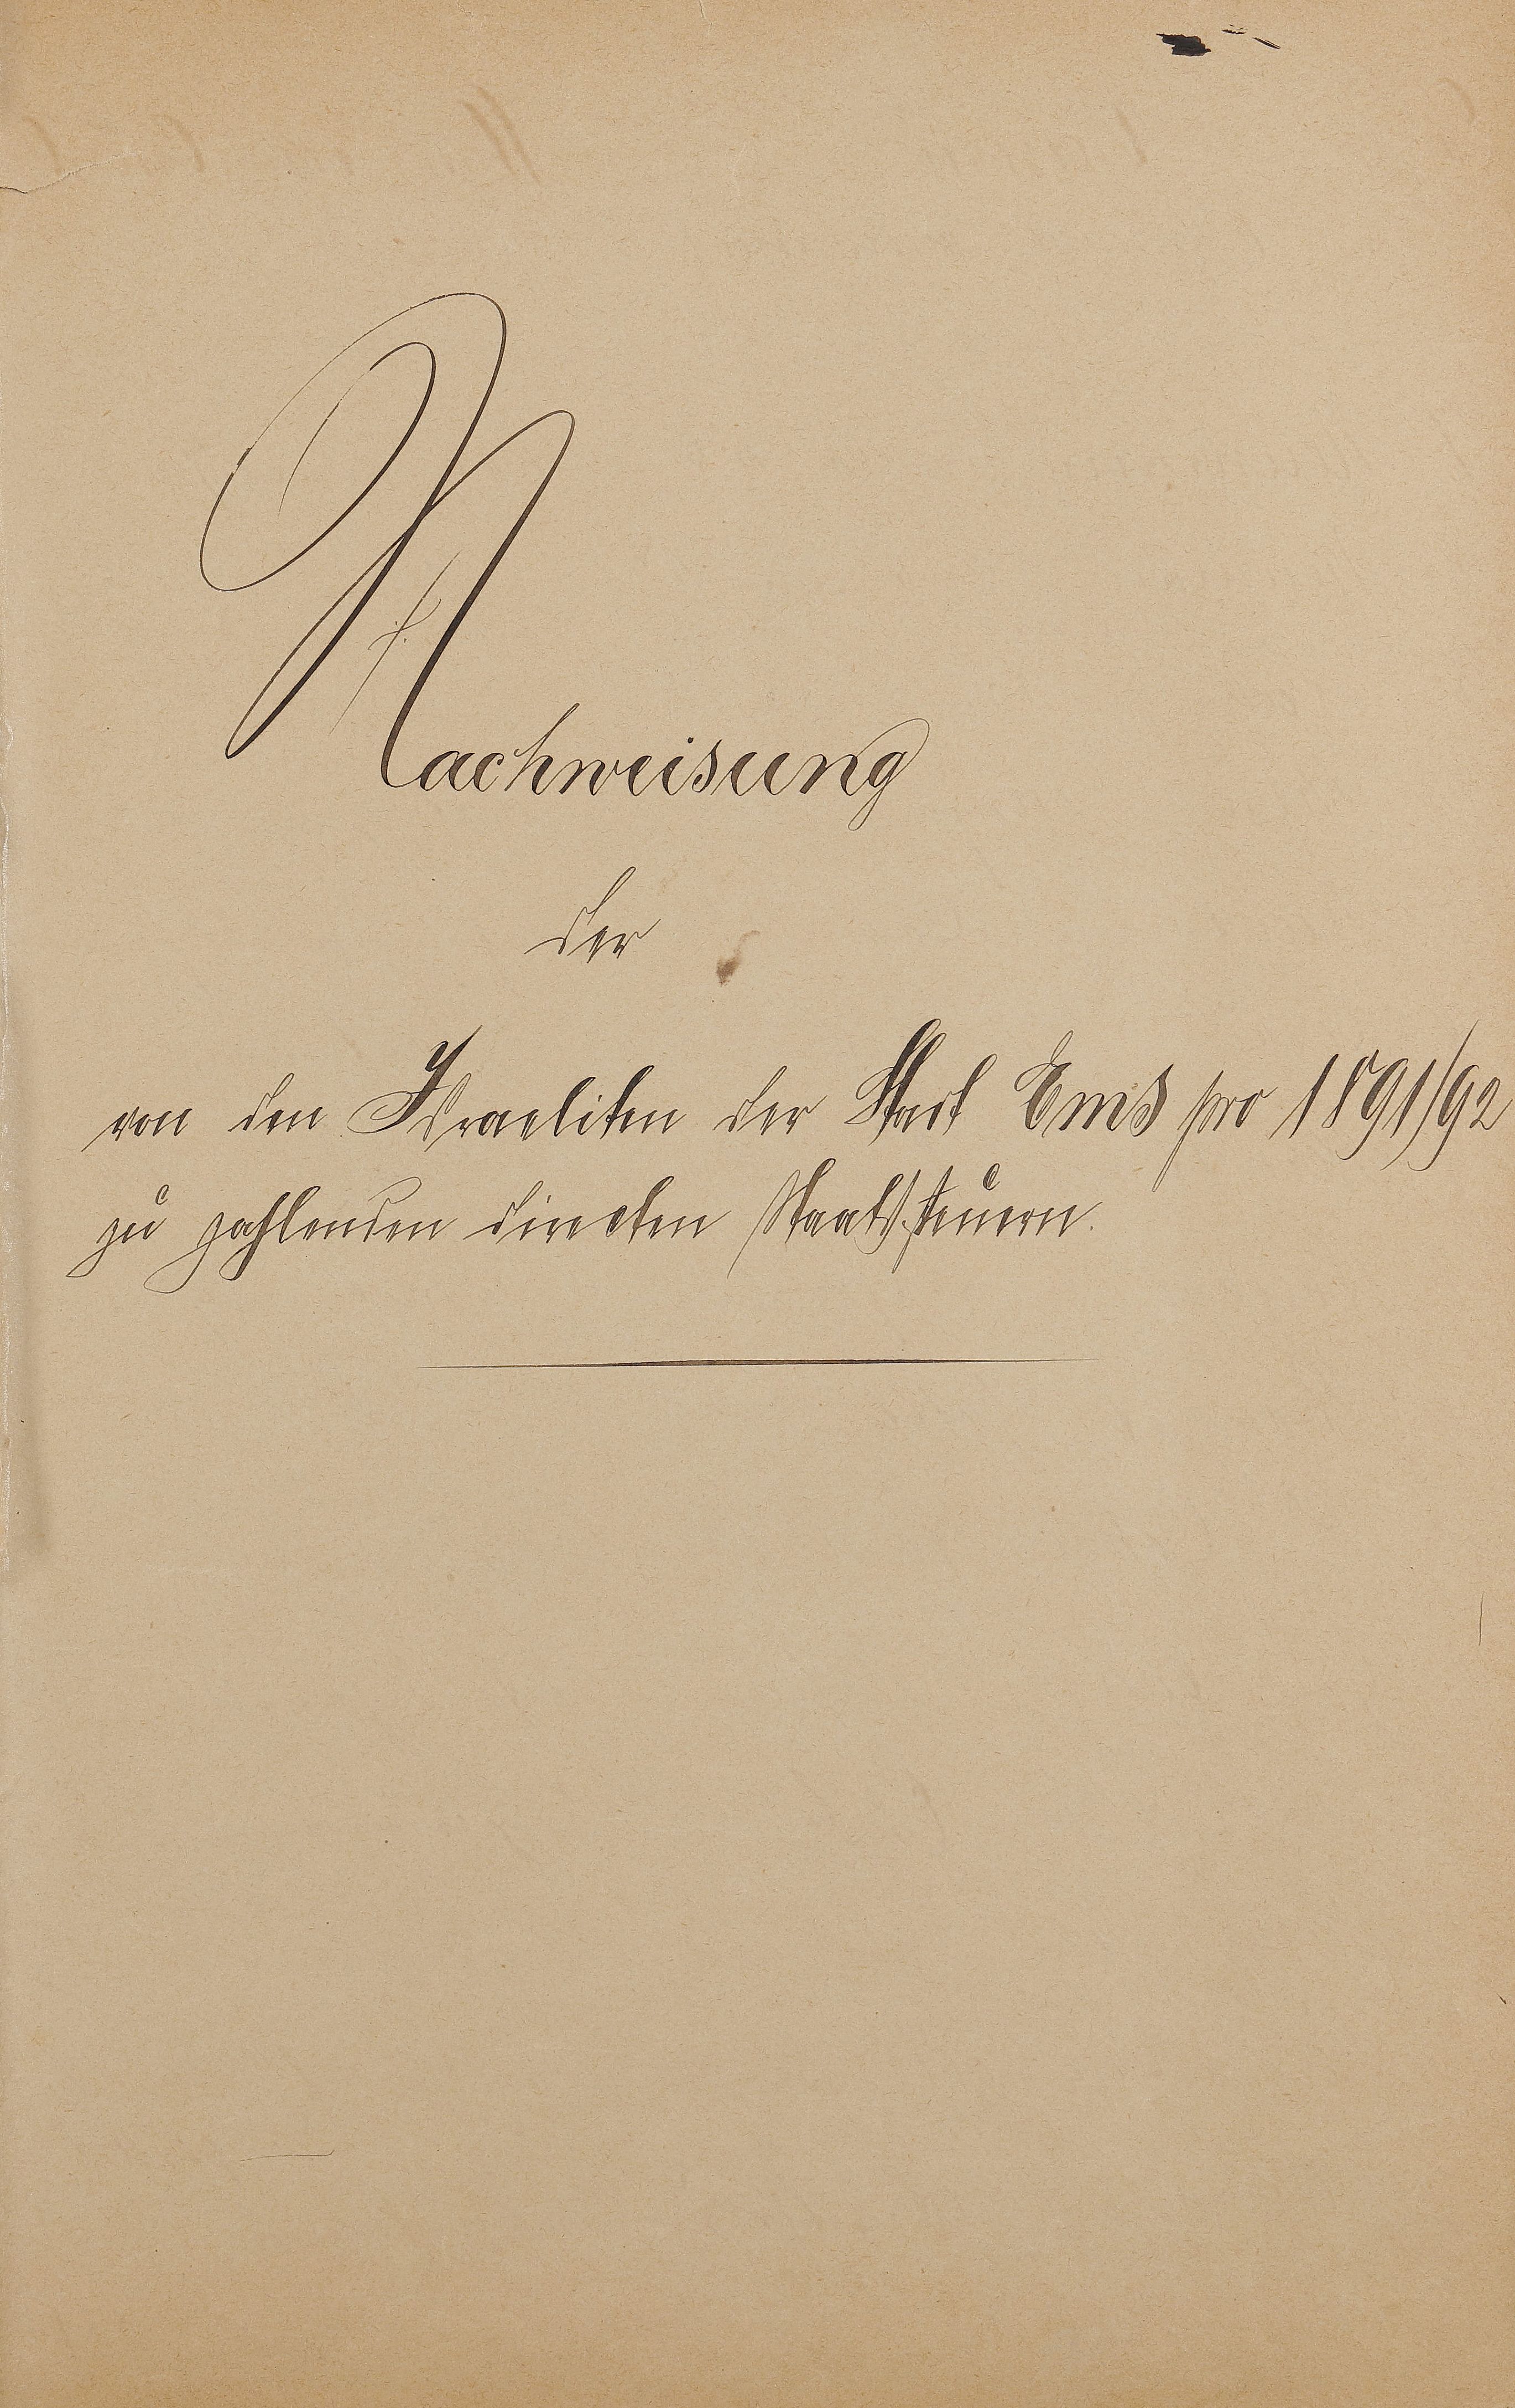 Nachweisung
der
von den Israeliten der Stadt Ems pro 1891/92
zu zahlenden directen Staatssteuern.